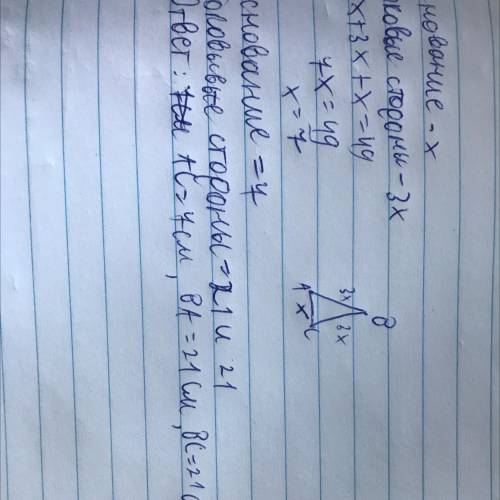 нование - x
ковые стороны - 3x
x + 3x + x = 49
7x = 49
x = 7
B
3x 3x
A x C
снование = 7
боковые стороны = 21 и 21
Ответ: AC = 7 см, BA = 21 см, BC = 21 с